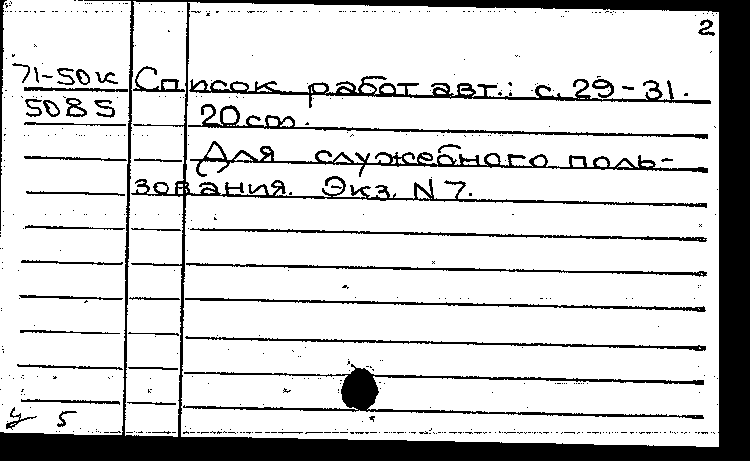 2
71-50к Список работ авт.: с. 29-31.
5085 20 cm.
Для служебного поль-
зования. Экз. N 7.
у 5